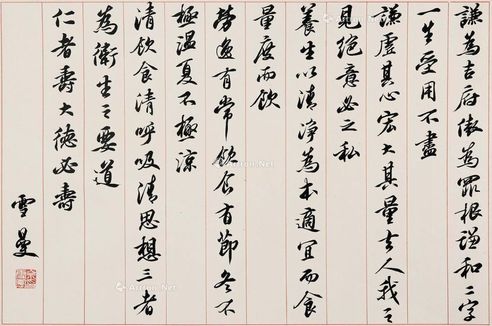 謙為吉府傲為罪根謙和二字
一生受用不盡
謙虛其心宏大其量去人我之
見絕意必之私
養生以清淨為本適宜而食
量度而飲
勞逸有常飲食有節冬不
極溫夏不極涼
清飲食清呼吸清思想三者
為衛生之要道
仁者壽大德必壽
雪曼
Artron.Net